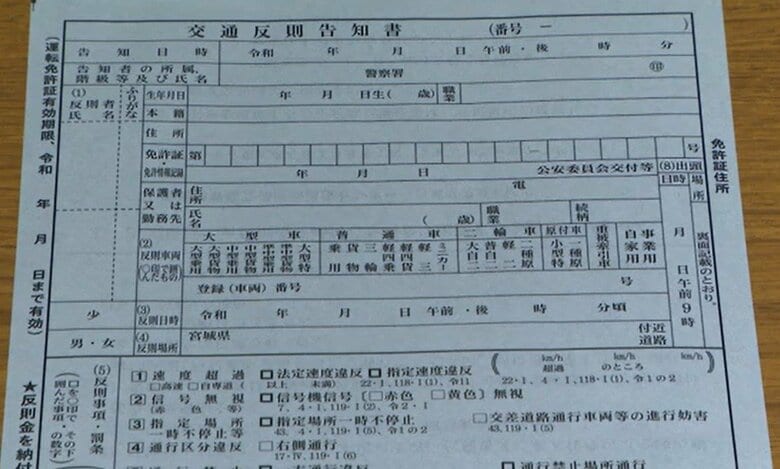 交通反則告知書 (番号 ー
告知日時 令和 年 月 日 午前・後 時 分
告知者の所属、階級等及び氏名 警察署 ㊞
(1) 反則者氏名
ふりがな
生年月日 年 月 日生( 歳) 職業
本籍
住所
免許証・免許情報記録 第 ー 号
年 月 日 公安委員会交付等
保護者又は勤務先 住所 電
氏名 ( 歳) 職業 続柄
(8)出頭
日時 場所
月 日 午前9時
裏面記載のとおり。
(2) 反則車両 (○印で囲んだもの)
大型車 普通車 二輪車 原付車 重被牽引車 自家用 事業用
大型乗用 大型貨物 中型乗用 中型貨物 準中型乗用 準中型貨物 大型特
乗用 貨物 三輪 軽四乗 軽四貨 軽三 ミニカー
大自二 普自二 軽二 小型特 一種原 二種原
登録(車両)番号 号
少
(3) 反則日時 令和 年 月 日 午前・後 時 分頃
男・女
(4) 反則場所 宮城県 付近道路
(運転免許証有効期限、令和 年 月 日まで有効)
免許証住所
(5) 反則事項・罰条
□を○印で囲んだ事項・その下の数字
★反則金を納付
1 速度超過 □法定速度違反 □指定速度違反 ( km/h 超過 km/h のところ )
□高速 □自専道 ( 以上 未満) 22・1、118・1(1)、令11 22・1、4・1、118・1(1)、令1の2
2 信号無視 □信号機信号〔□赤色 □黄色〕無視
(赤色等) 7、4・1、119・1(2)、令2・1
3 指定場所一時不停止等 □指定場所一時不停止 □交差道路通行車両等の進行妨害
43、119・1(5)、令1の2 43、119・1(5)
4 通行区分違反 □右側通行
17・Ⅳ、119・1(6)
□通行禁止場所通行